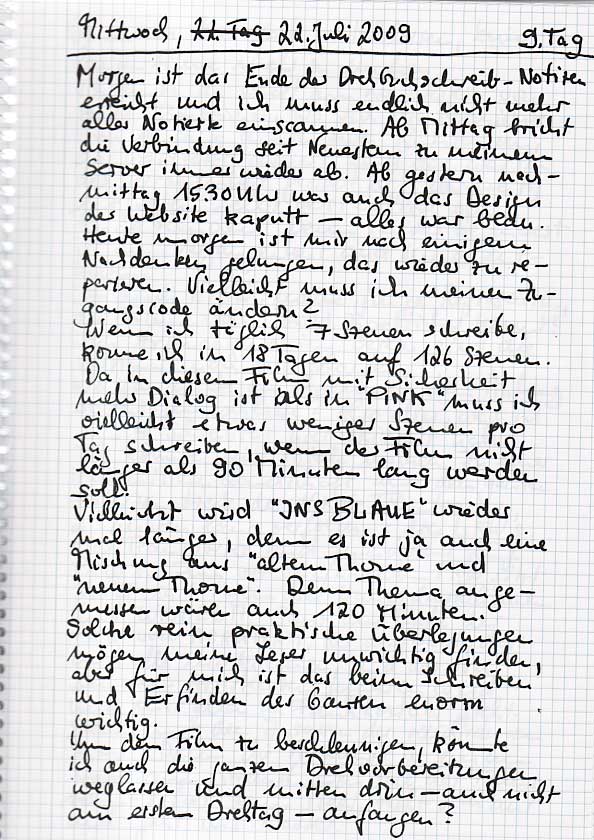 Mittwoch, 22. Tag 22. Juli 2009 9. Tag
Morgen ist das Ende der Drehbuchschreib-Notizen
erreicht und ich muss endlich nicht mehr
alles Notierte einscannen. Ab Mittag bricht
die Verbindung seit Neuestem zu meinem
Server immer wieder ab. Ab gestern nach-
mittag 15.30 Uhr war auch das Design
der Website kaputt – alles war blau.
Heute morgen ist mir nach einigem
Nachdenken gelungen, das wieder zu re-
parieren. Vielleicht muss ich meinen Zu-
gangscode ändern?
Wenn ich täglich 7 Szenen schreibe,
komme ich in 18 Tagen auf 126 Szenen.
Da in diesem Film mit Sicherheit
mehr Dialog ist als in "PINK" muss ich
vielleicht etwas weniger Szenen pro
Tag schreiben, wenn der Film nicht
länger als 90 Minuten lang werden
soll.
Vielleicht wird "INS BLAUE" wieder
mal länger, denn es ist ja auch eine
Mischung aus "altem Thome" und
"neuem Thome". Dem Thema ange-
messen wären auch 120 Minuten.
Solche rein praktische Überlegungen
mögen meine Leser unwichtig finden,
aber für mich ist das beim Schreiben
und Erfinden des Ganzen enorm
wichtig.
Um den Film zu beschleunigen, könnte
ich auch die ganzen Drehvorbereitungen
weglassen und mitten drin – auch nicht
am ersten Drehtag – anfangen?